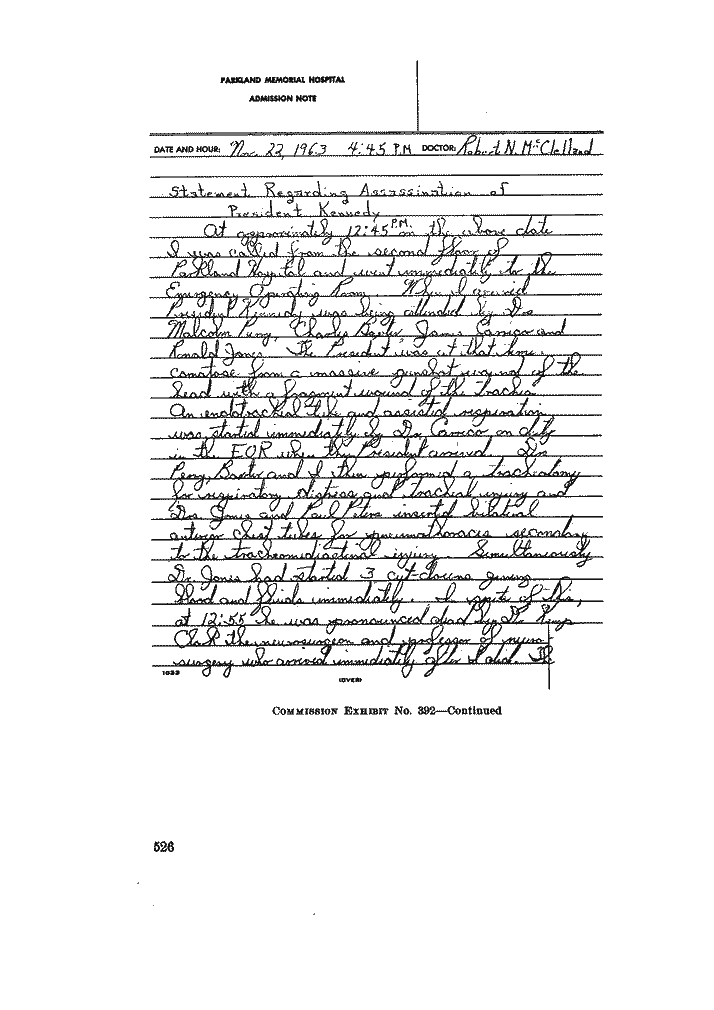 PARKLAND MEMORIAL HOSPITAL
ADMISSION NOTE
DATE AND HOUR: Nov. 22, 1963 4:45 P.M. DOCTOR: Robert N. McClelland
Statement Regarding Assassination of
President Kennedy
At approximately 12:45 P.M. on the above date
I was called from the second floor of
Parkland Hospital and went immediately to the
Emergency Operating Room. When I arrived
President Kennedy was being attended by Drs
Malcolm Perry, Charles Baxter, James Carrico and
Ronald Jones. The President was at that time
comatose from a massive gunshot wound of the
head with a fragment wound of the trachea.
An endotracheal tube and assisted respiration
was started immediately by Dr. Carrico on duty
in the EOR when the President arrived. Drs.
Perry, Baxter and I then performed a tracheotomy
for respiratory distress and tracheal injury and
Drs. Jones and Paul Peters inserted bilateral
anterior chest tubes for pneumothoracis secondary
to the tracheomediastinal injury. Simultaneously
Dr. Jones had started 3 cut-downs giving
blood and fluids immediately. In spite of this,
at 12:55 he was pronounced dead by Dr. Kemp
Clark the neurosurgeon and professor of neuro-
surgery who arrived immediately after I did. The
1033
(OVER)
COMMISSION EXHIBIT No. 392—Continued
526